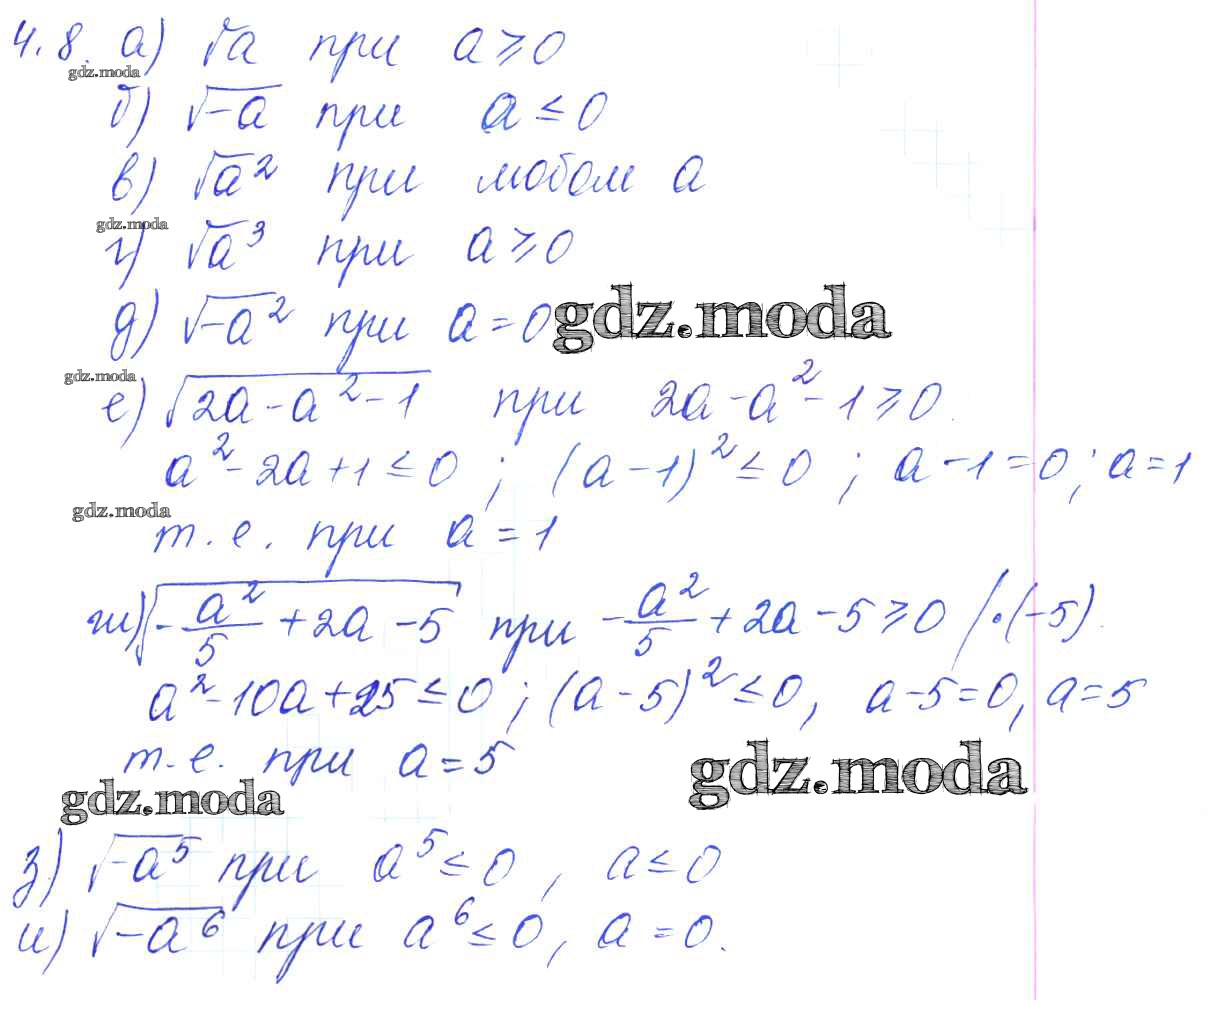 4.8. а) √a при a ≥ 0
gdz.moda
б) √-a при a ≤ 0
в) √a² при любом a
gdz.moda
г) √a³ при a ≥ 0
д) √-a² при a = 0
gdz.moda
gdz.moda
е) √2a - a² - 1 при 2a - a² - 1 ≥ 0.
a² - 2a + 1 ≤ 0 ; (a - 1)² ≤ 0 ; a - 1 = 0 ; a = 1
gdz.moda
т.е. при a = 1
ж) √-a²/5 + 2a - 5 при -a²/5 + 2a - 5 ≥ 0 /·(-5).
a² - 10a + 25 ≤ 0 ; (a - 5)² ≤ 0, a - 5 = 0, a = 5
т.е. при a = 5
gdz.moda
gdz.moda
з) √-a⁵ при a⁵ ≤ 0, a ≤ 0
и) √-a⁶ при a⁶ ≤ 0, a = 0.